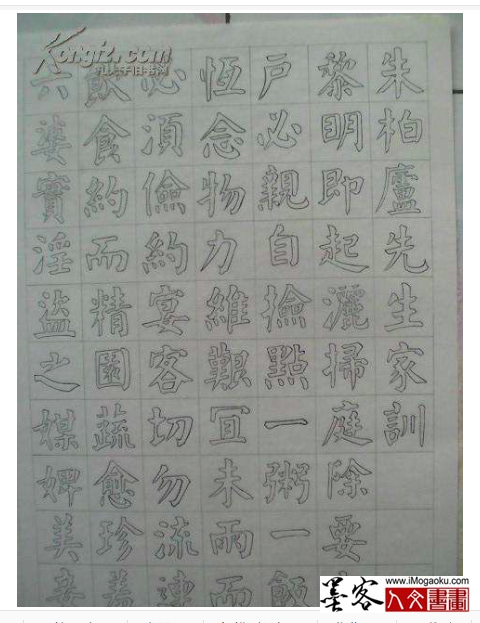 朱柏廬先生家訓
黎明即起灑掃庭除要
戶必親自撿點一粥一飯
恆念物力維艱冝未雨而
必湏儉約宴客切勿流連
飲食約而精園蔬愈珍羞
六婆實淫盜之媒婢美妾
Kongfz.com
孔夫子旧书网
墨客
www.iMogaoku.com
人文書畫